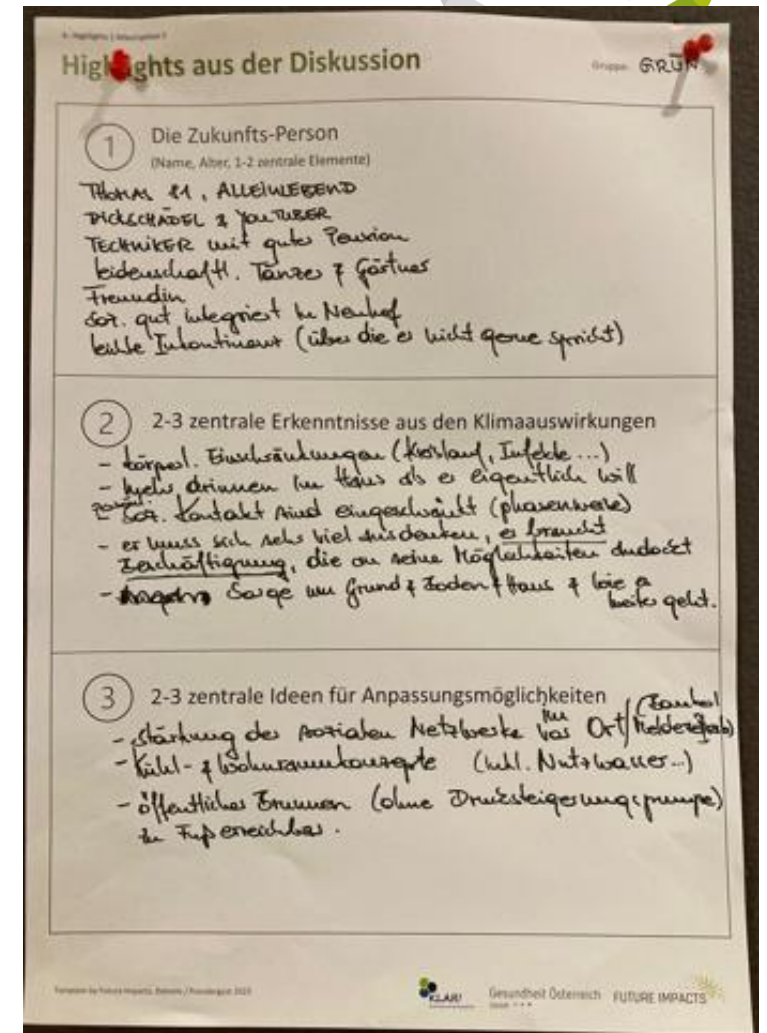 Highlights aus der Diskussion
Gruppe: GRÜN
1 Die Zukunfts-Person
(Name, Alter, 1-2 zentrale Elemente)
THOMAS 81, ALLEINLEBEND
DICKSCHÄDEL & YOUTUBER
TECHNIKER mit guter Pension
leidenschaftl. Tänzer & Gärtner
Freundin
soz. gut integriert in Neuhof
leichte Inkontinenz (über die er nicht gerne spricht)
2 2-3 zentrale Erkenntnisse aus den Klimaauswirkungen
- körperl. Einschränkungen (Kreislauf, Infekte ...)
- mehr drinnen im Haus als er eigentlich will
- soz. Kontakt sind eingeschränkt (phasenweise)
- er muss sich sehr viel ausdenken, er braucht
Beschäftigung, die an seine Möglichkeiten andockt
- Sorge um Grund & Boden & Haus & wie er weiter geht.
3 2-3 zentrale Ideen für Anpassungsmöglichkeiten
- Stärkung der sozialen Netzwerke im Ort /
- Kühl- & Wohnraumkonzepte (inkl. Nutzwasser...)
- öffentlicher Brunnen (ohne Drucksteigerungspumpe)
zu Fuß erreichbar.
KLAR! Gesundheit Österreich FUTURE IMPACTS